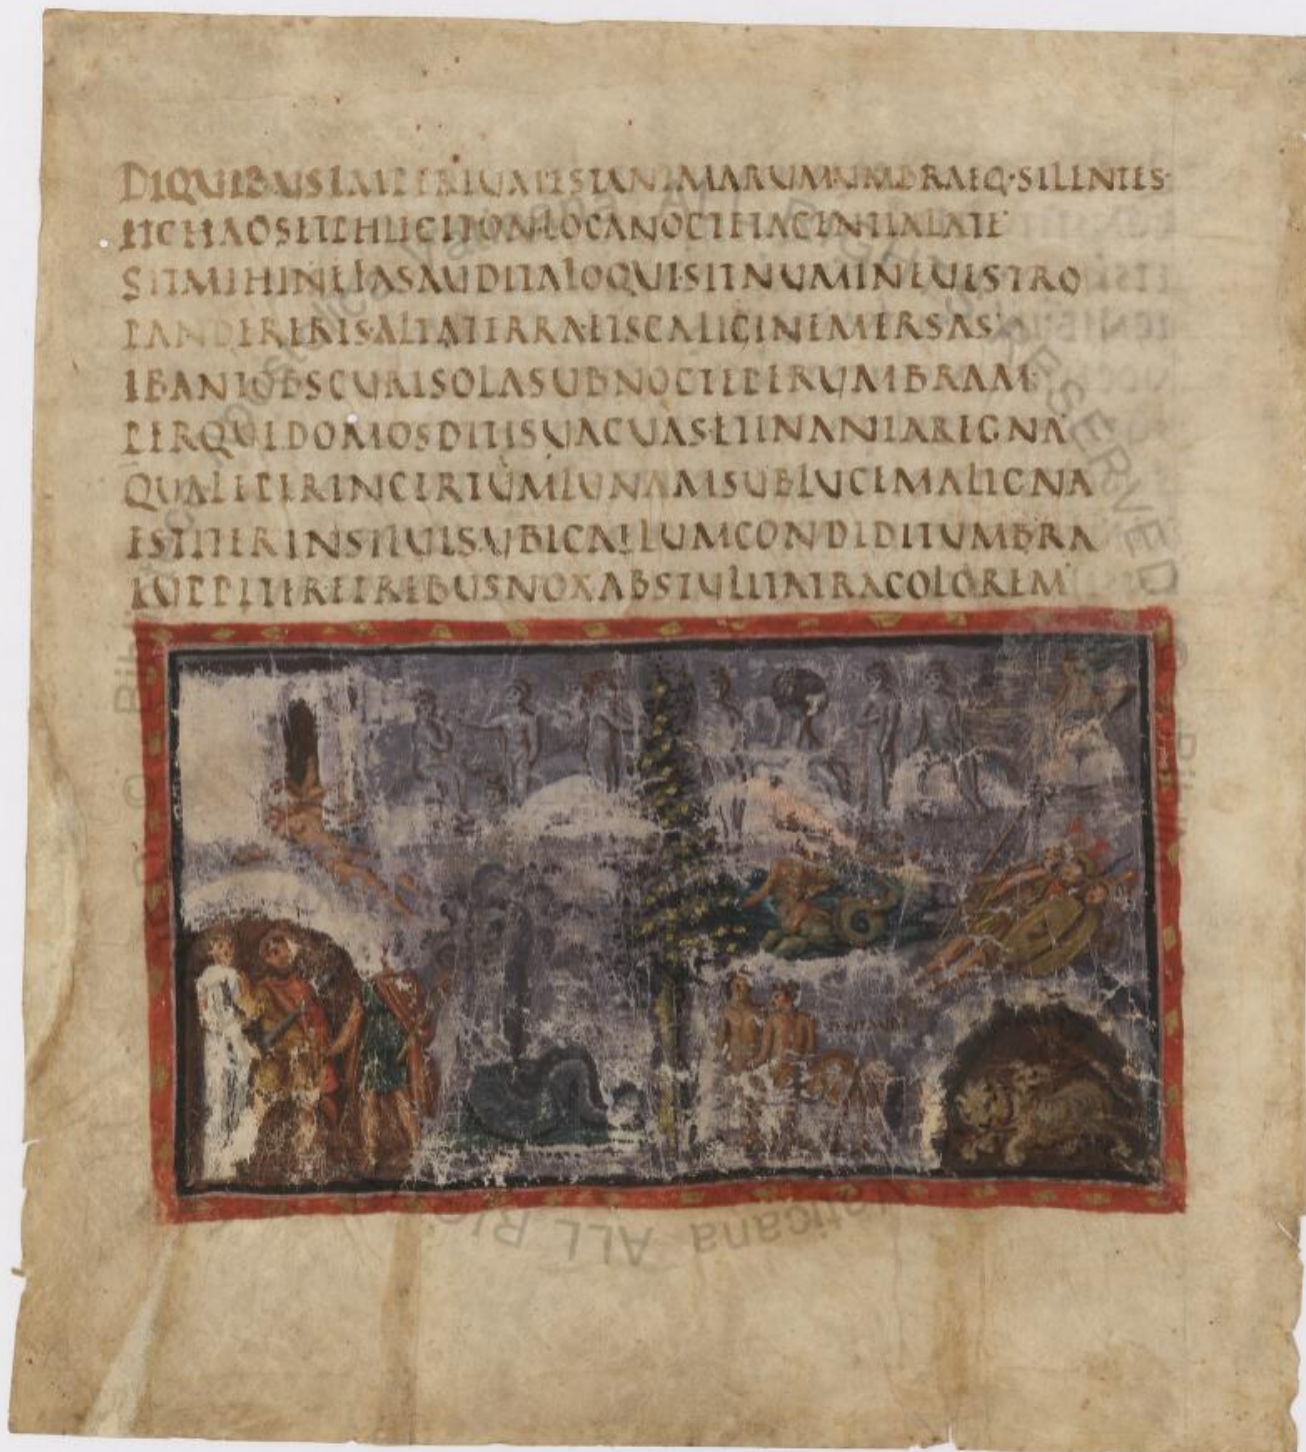 DIQUIBUSIMPERIUMESTANIMARUMUMBRAEQ·SILENTES·
ETCHAOSETPHLEGETHONLOCANOCTETACENTIALATE
SITMIHIFASAUDITALOQUI·SITNUMINEVESTRO
PANDERERES·ALTATERRA·ETCALIGINEMERSAS·
IBANTOBSCURISOLASUBNOCTEPERUMBRAM·
PERQUEDOMOSDITISVACUAS·ETINANIAREGNA
QUALEPERINCERTUMLUNAMSUBLUCEMALIGNA
ESTITERINSILVIS·UBICAELUMCONDIDITUMBRA
IUPPITERETREBUSNOXABSTULITATRACOLOREM
ALL RIGHTS RESERVED